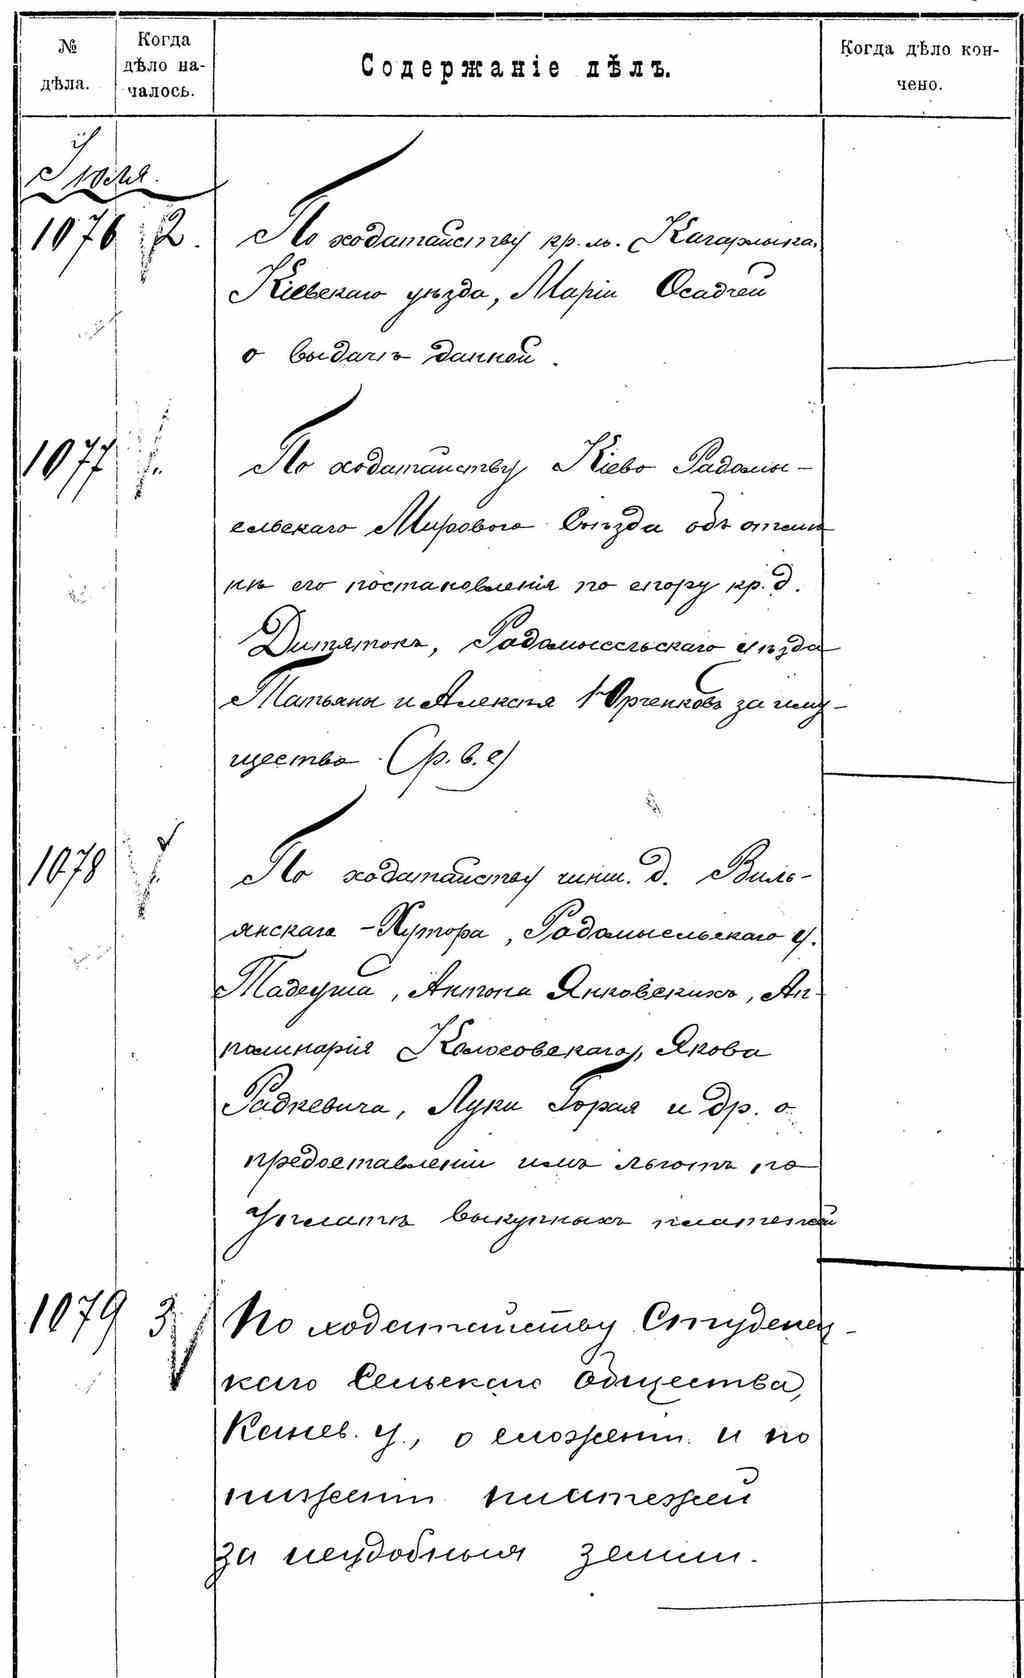 № дѣла.
Когда дѣло на-
чалось.
Содержаніе дѣлъ.
Когда дѣло кон-
чено.
Іюля.
1076 2. По ходатайству кр. м. Кагарлыка,
Кіевскаго уѣзда, Маріи Осадчей
о выдачѣ данной.
1077 По ходатайству Кіево Радомы-
сльскаго Мирового Съѣзда объ отмѣ
нѣ его постановленія по спору кр. д.
Дитятокъ, Радомысльскаго уѣзда
Татьяны и Алексѣя Юрченковъ за иму-
щество (р. в. с)
1078 По ходатайству чинш. д. Виль-
янскаго-Хутора, Радомысльскаго у.
Тадеуша, Антона Янковскихъ, Ап-
полинарія Колосовскаго, Якова
Радкевича, Луки Горая и др. о
предоставленіи имъ льготъ по
уплатѣ выкупныхъ платежей
1079 3 По ходатайству Студенец-
каго Сельскаго Общества,
Канев. у., о сложеніи и по
ниженіи платежей
за неудобныя земли.